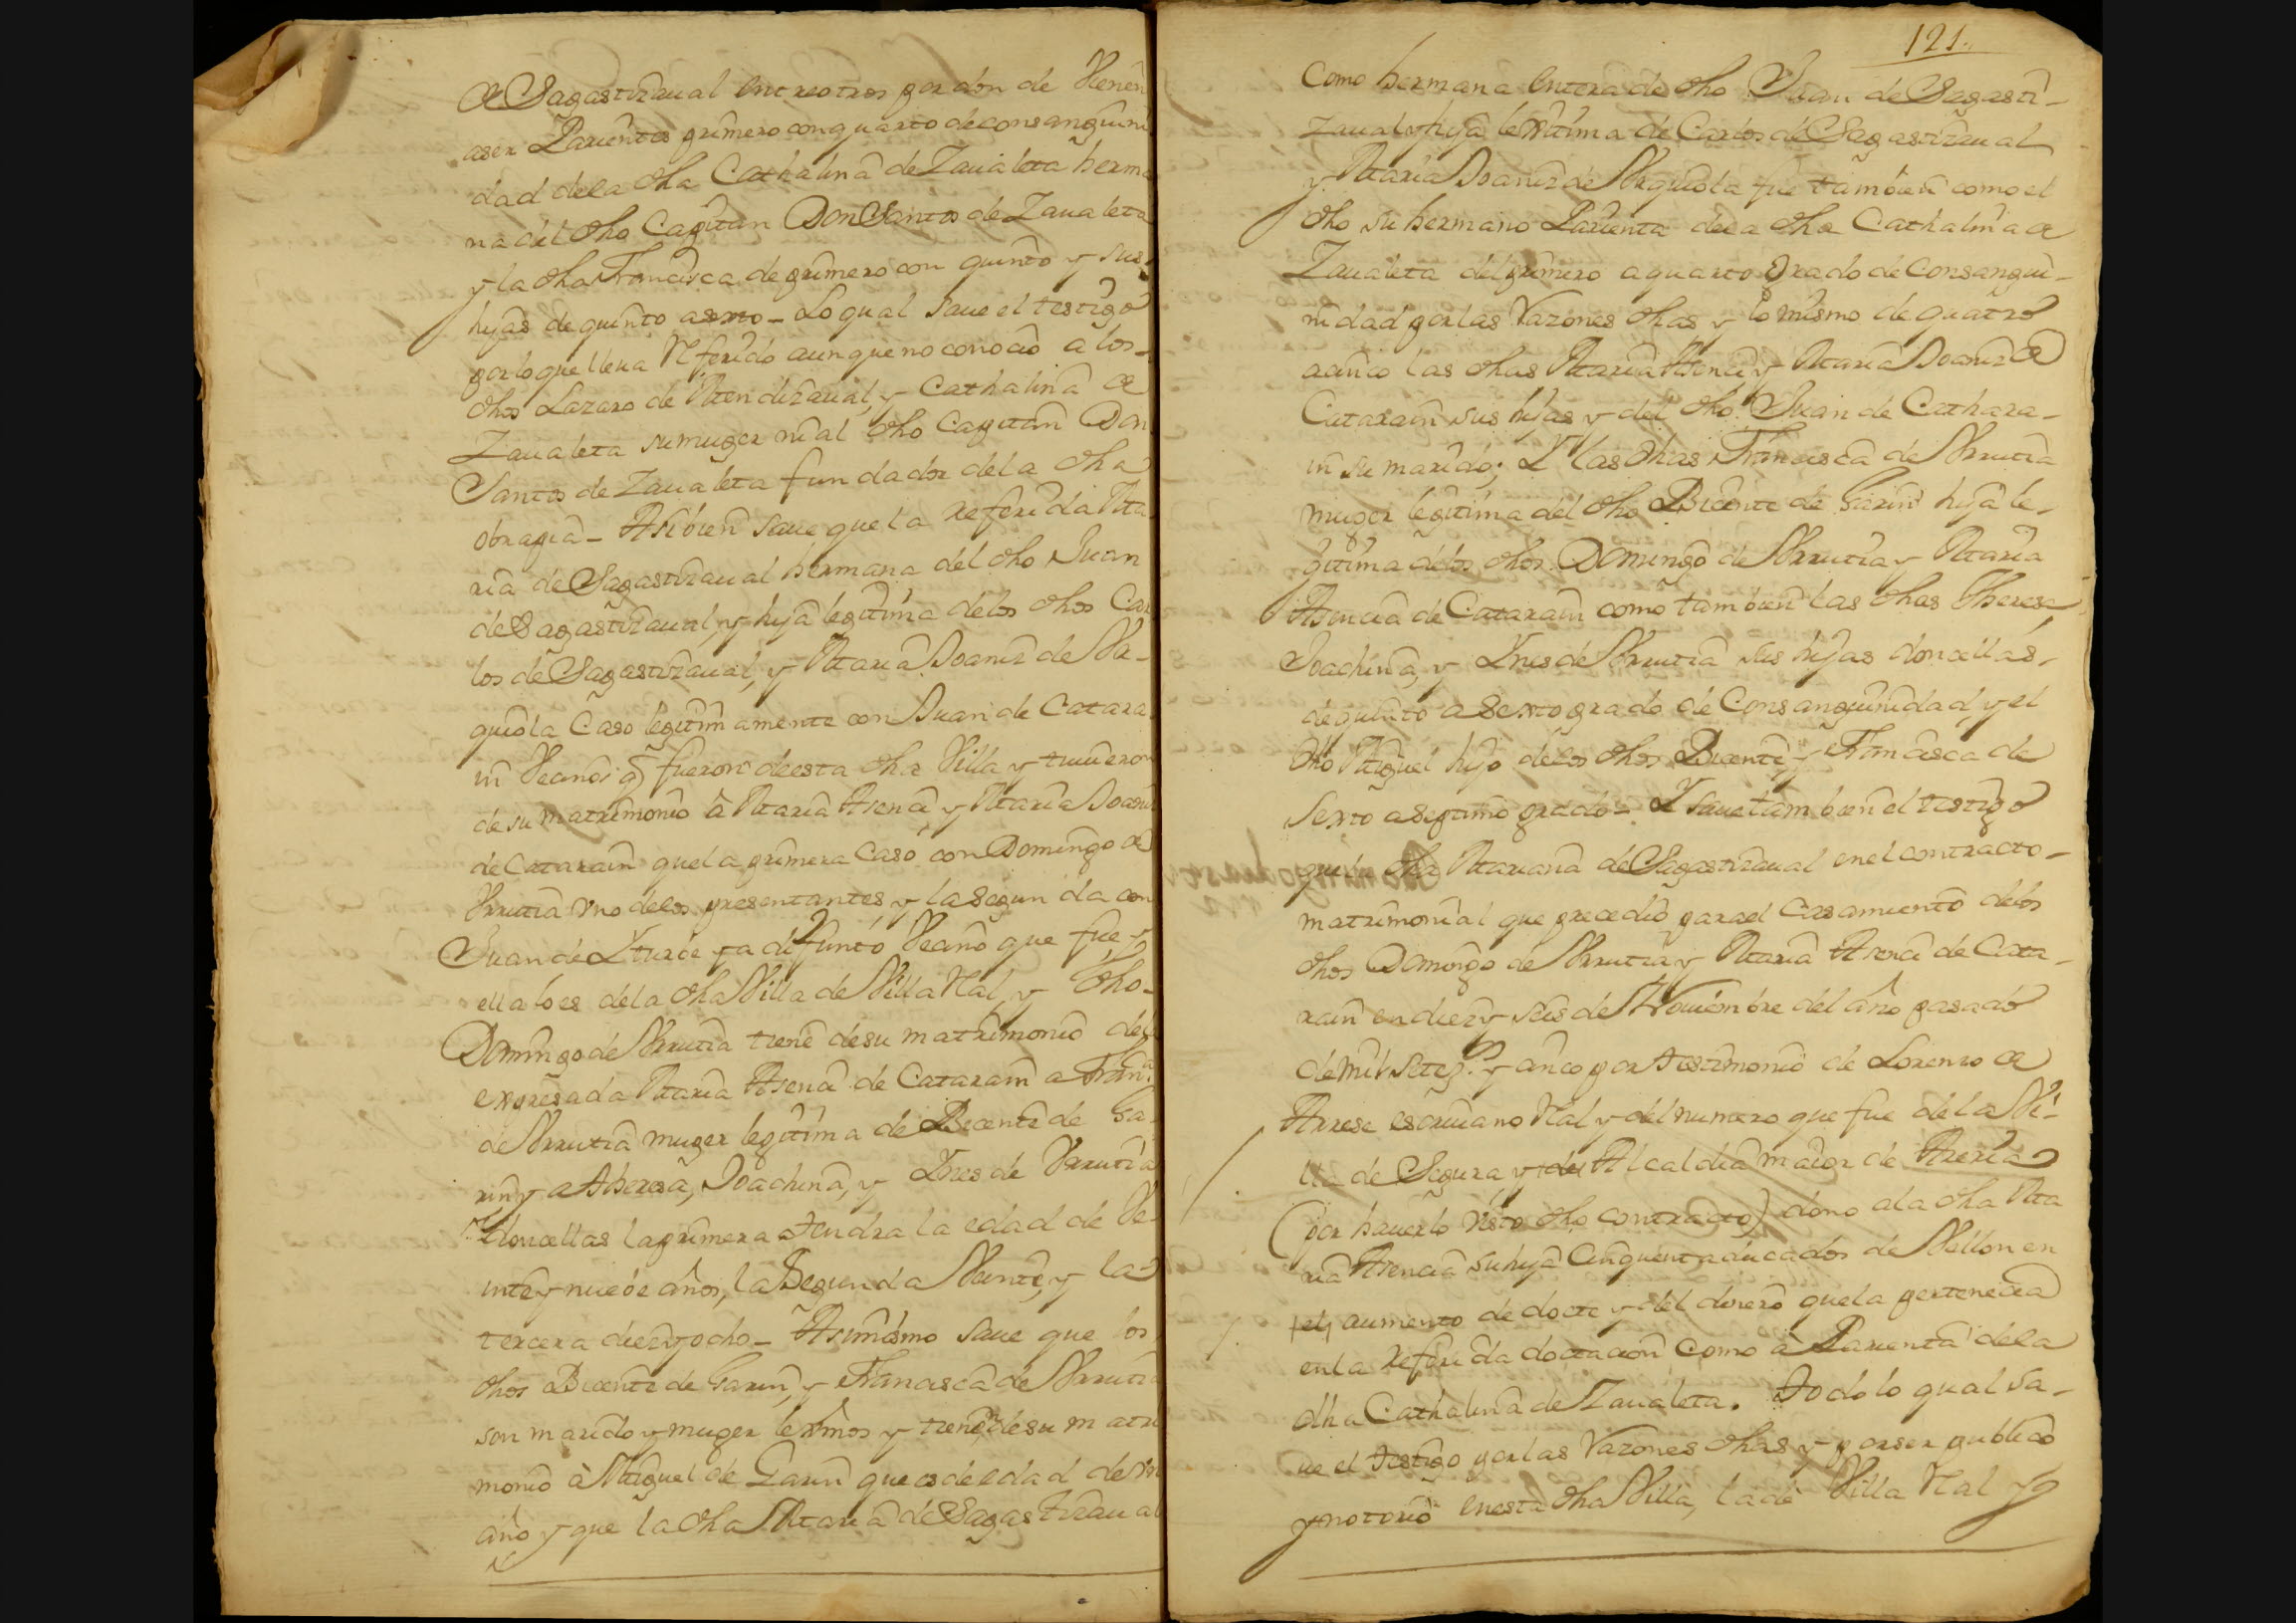 de Sagastizaual entre otros por don de Vienen
a ser Parientes primero con quarto de consanguini
dad dela dha Cathalina de Zaualeta herma
na del dho Capitan Don Santos de Zaualeta
y la dha Francisca de primero con quinto y sus
hijas de quinto a sexto_ Lo qual saue el testigo
por lo que lleua Referido aunque no conocio a los_
dhos Lazaro de Mendizaual, y Cathalina de
Zaualeta su muger ni al dho Capitan Don
Santos de Zaualeta fundador dela dha
obrapia_ Asibien saue que la referida Ma
ria de Sagastizaual hermana del dho Juan
de Sagastizaual, y hija legitima de los dhos Car
los de Sagastizaual, y Maria Joaniz de Vr_
quiola Caso legitimamente con Juan de Catara
in Vecinos q fueron de esta dha Villa y tuuieron
de su matrimonio à Maria Asencia y Maria Joaniz
de Catarain que la primera Caso con Domingo de
Vrrutia vno delos presentantes y la segunda con
Juan de Yturbe ya difunto Vecino que fue y
ella lo es dela dha Villa de Villa Ral, y dho_
Domingo de Vrrutia tiene de su matrimonio dela
expresada Maria Asencia de Catarain a Franca
de Vrrutia muger legitima de Bicente de Ga_
rin y a Theresa, Joachina, y Ynes de Vrrutia
doncellas la primera tendra la edad de Ve_
inte y nuebe años, la Segunda Veinte, y la
tercera diez y ocho_ Asimismo saue que los
dhos Bicente de Garin, y Francisca de Vrrutia
son marido y muger lexmos y tienen de su matri
monio à Miguel de Garin que es de edad de vn
año y que la dha Maria de Sagastizaual
121.
Como hermana entera de dho Juan de Sagasti_
zaual y hija lexitima de Carlos de Sagastizaual
y Maria Joaniz de Vrquiola fue tambien como el
dho su hermano Parienta dela dha Cathalina de
Zaualeta del primero a quarto grado de consangui_
nidad por las Razones dhas y lo mismo de quatro
a cinco las dhas Maria Asencia y Maria Joaniz de
Catarain sus hijas y del dho Juan de Cathara_
in su marido; Y las dhas Francisca de Vrrutia
muger legitima del dho Bicente de Garin hija le_
gitima de los dhos Domingo de Vrrutia y Maria
Asencia de Catarain como tambien las dhas Theresa,
Joachina, y Ynes de Vrrutia sus hijas doncellas,
de quinto a Sexto grado de Consanguinidad, y el
dho Miguel hijo delos dhos Bicente, y Francisca de
Sexto a septimo grado_ Y saue tambien el testigo
que la dha Mariana de Sagastizaual en el contracto_
matrimonial que precedio para el Casamiento delos
dhos Domingo de Vrrutia y Maria Asencia de Cata_
rain en diez y seis de Nouiembre del año pasado
de mil Setezos y cinco por testimonio de Lorenzo de
Arrese escriuano Ral y del numero que fue de la Vi_
lla de Segura, y del Alcaldia maior de Areria
(por hauerlo visto dho contracto) dono a la dha Ma
ria Asencia su hija Cinquenta ducados de Vellon en
el aumento de docte y del dinero que la pertenecia
en la referida doctacion como à Parienta dela
dha Cathalina de Zaualeta. Todo lo qual sa_
ue el testigo por las Razones dhas y por ser publico
y notorio en esta dha Villa, la de Villa Ral y